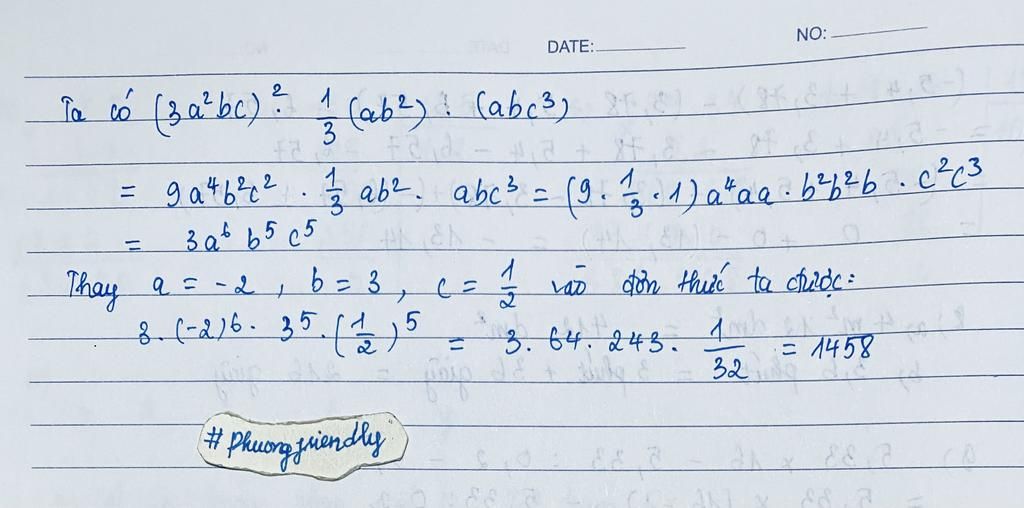 DATE: NO:
Ta có (3a²bc)² · 1/3 (ab²) · (abc³)
= 9a⁴b²c² · 1/3 ab² · abc³ = (9 · 1/3 · 1) a⁴aa · b²b²b · c²c³
= 3a⁶ b⁵ c⁵
Thay a = -2 , b = 3 , c = 1/2 vào đơn thức ta được:
3. (-2)6 · 3⁵ · (1/2)⁵ = 3. 64. 243. 1/32 = 1458
# phuongfriendly